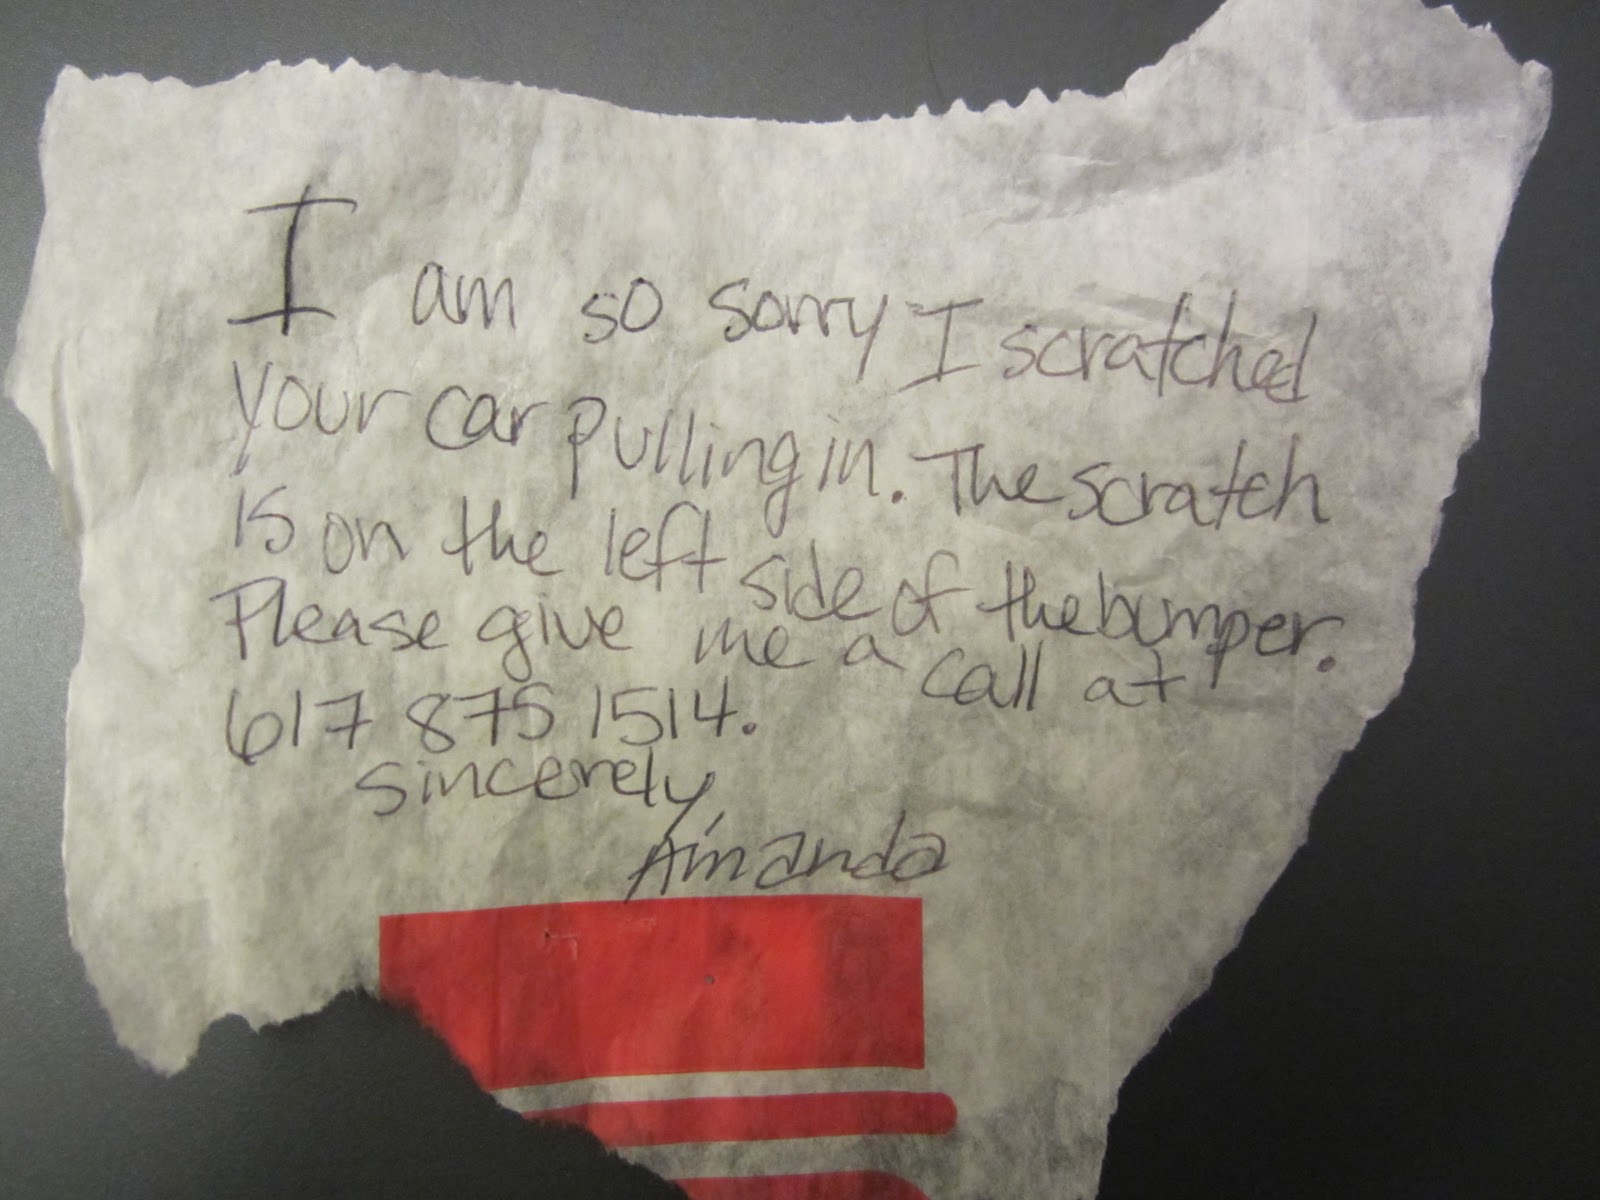 I am so sorry I scratched
your car pulling in. The scratch
is on the left side of the bumper.
Please give me a call at
617 875 1514.
Sincerely,
Amanda